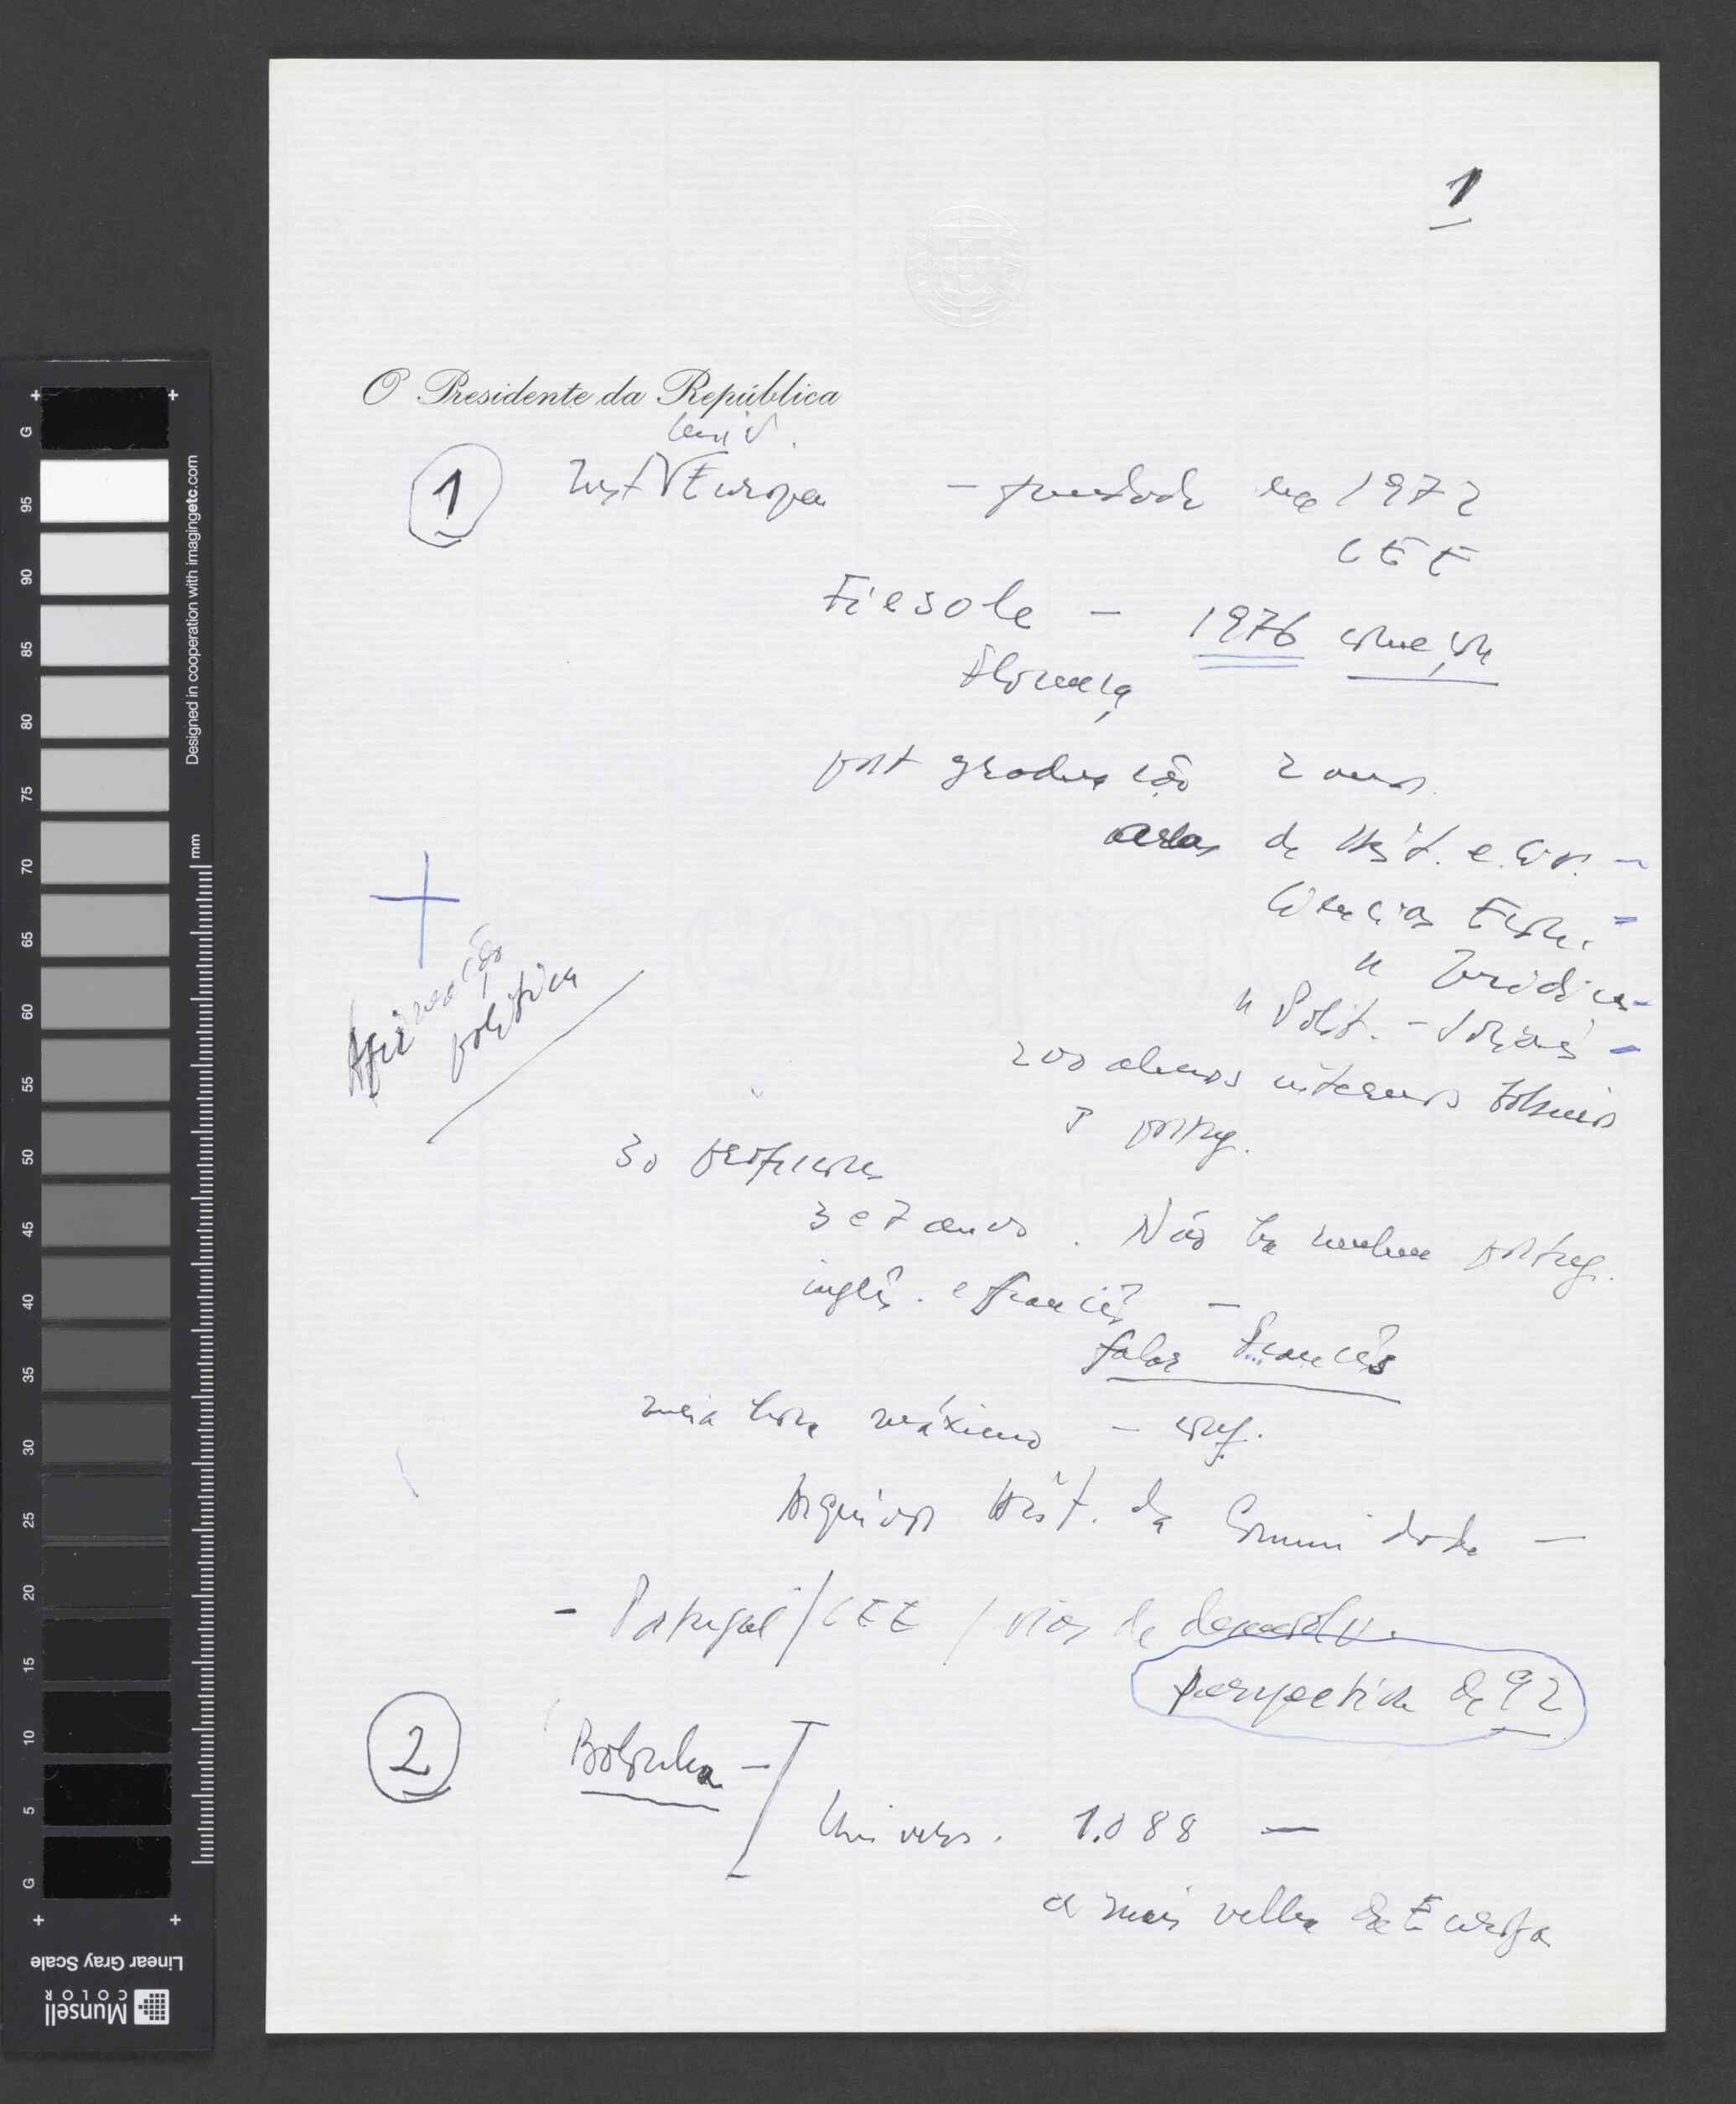 1
O Presidente da República
Univ.
1 Inst √ Europeu - fundado em 1972
CEE
Fiesole - 1976 começou
Florença
post graduação 2 anos
areas de Hist. e Civ. -
Ciencias Econ. =
" Juridicas -
" Polit. - Sociais -
200 alunos internos bolseiros
5 portug.
+
Afirmação
política
30 professores
3 e 7 anos. Não ha nenhum portug.
inglês. e francês -
falar Francês
meia hora máximo - conf.
Arquivos Hist. da Comunidade -
- Portugal / CEE / vias de desenvolv.
perspectiva de 92
2 Bolonha - [
Univers. 1.088 -
a mais velha da Europa
G 95 90 85 80 75 70 65 60 55 50 45 40 35 30 25 20 15 10 5 G
mm
Designed in cooperation with imagingetc.com
Linear Gray Scale
Munsell
COLOR